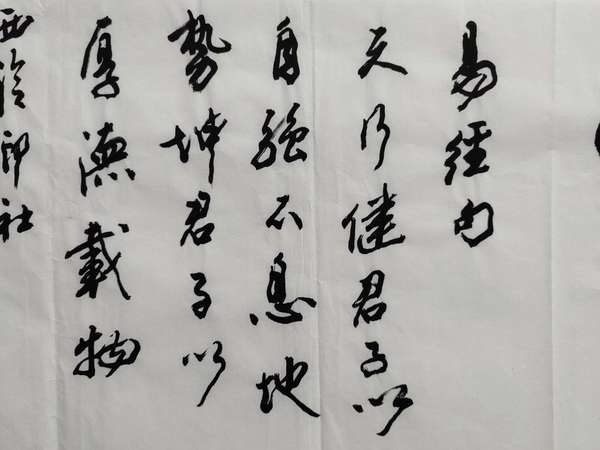 易經句
天行健君子以
自強不息地
勢坤君子以
厚德載物
西泠印社